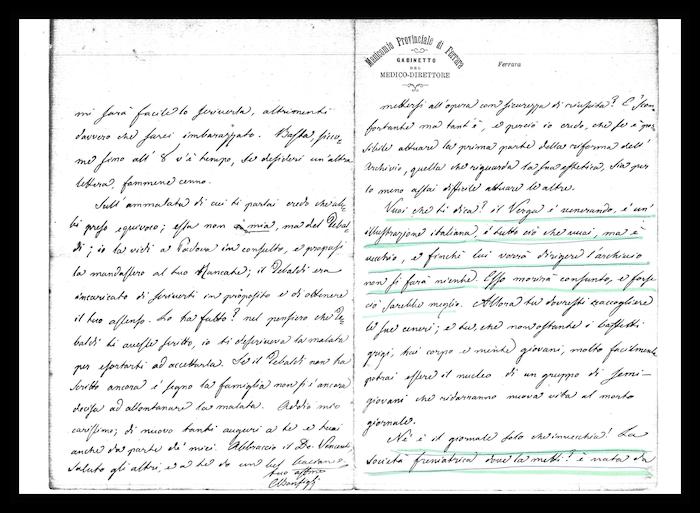 mi sarà facile lo scriverla, altrimenti
davvero che sarei imbarazzato. Basta, sicco-
me fino all' 8 v'è tempo, se desideri un'altra
lettera, fammene cenno.
Sull'ammalata di cui ti parlai credo che ab-
bi preso equivoco; essa non è mia, ma del Tebal-
di; io la vidi a Padova in consulto, e proposi
la mandassero al tuo Mancate; il Tebaldi era
incaricato di scriverti in proposito e di ottenere
il tuo assenso. Lo ha fatto? nel pensiero che Te-
baldi ti avesse scritto, io ti descriveva la malata
per esortarti ad accettarla. Se il Tebaldi non ha
scritto ancora è segno la famiglia non si è ancora
decisa ad allontanare la malata. Addio mio
carissimo; di nuovo tanti auguri a te e tuoi
anche da parte de' miei. Abbraccio il De Vincenti
saluto gli altri, e a te do un bel bacione
tuo affmo
CBonfigli
Manicomio Provinciale di Ferrara
GABINETTO
DEL
MEDICO-DIRETTORE
Ferrara
mettersi all'opera con sicurezza di riuscita? È scon-
fortante ma tant'è, e perciò io credo, che se è pos-
sibile attuare la prima parte della riforma dell'
Archivio, quella che riguarda la sua estetica, sia per
lo meno assai difficile attuare le altre.
Vuoi che ti dica? il Verga è venerando, è un'
illustrazione italiana, è tutto ciò che vuoi, ma è
vecchio, e finchè lui vorrà dirigere l'archivio
non si farà niente. Esso morirà consunto, e forse
ciò sarebbe meglio. Allora tu dovresti raccogliere
le sue ceneri; e tu, che nonostante i baffetti
grigi, hai corpo e mente giovani, molto facilmente
potrai essere il nucleo di un gruppo di semi-
giovani che ridaranno nuova vita al morto
giornale.
Nè è il giornale solo che invecchia! La
Società freniatrica dove la metti? è nata da